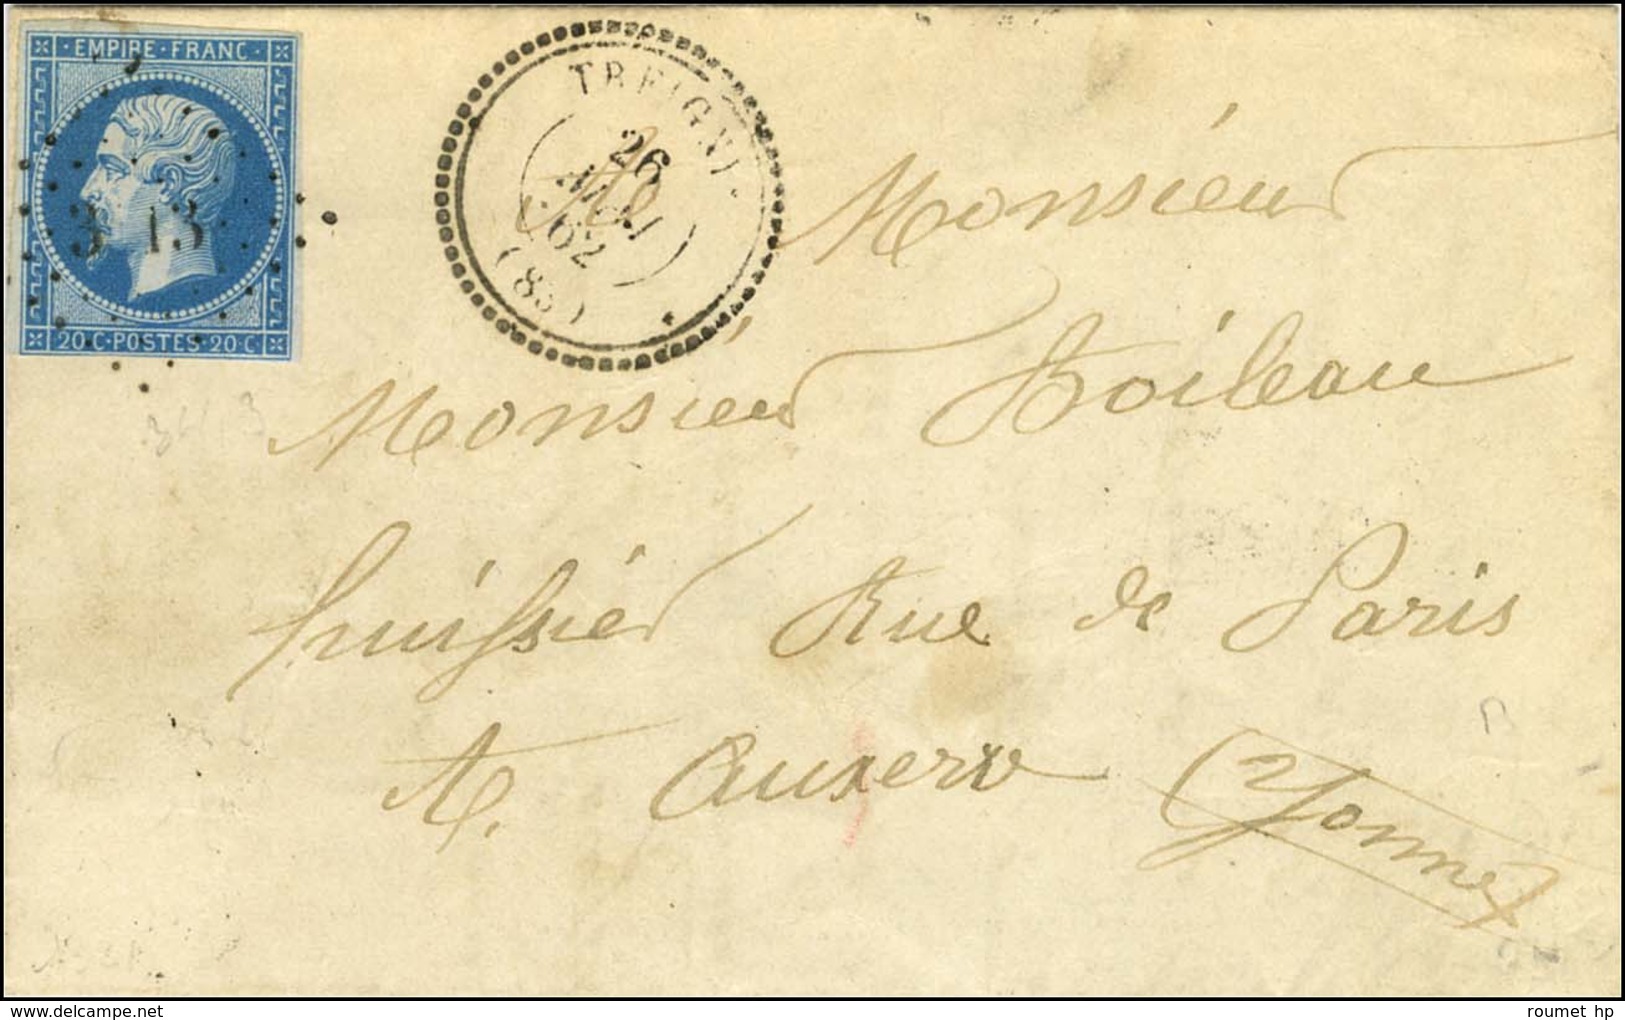 EMPIRE · FRANC
3 13
20 C · POSTES · 20 C
TREIGNY
26
MAI
62
(83)
Monsieur
Monsieur Boileau
huissier Rue de Paris
A. Auxerre (Yonne)
3413
roumet hp